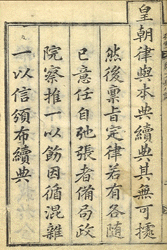 皇朝律與本典續典其無可據
然後稟旨定律若有各隨
已意任自弛張者備局政
院察推一以飭因循混雜
一以信頒布續典